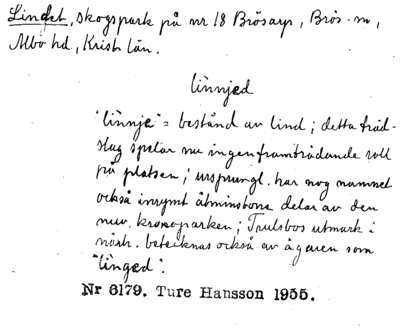 Lindet, skogspark på nr 18 Brösarp, Brös. sn,
Albo hd, Krist. län.
linnjed
"linnje" = bestånd av lind; detta träd-
slag spelar nu ingen framträdande roll
på platsen; ursprungl. har nog namnet
också inrymt åtminstone delar av den
nuv. kronoparken; Trulsbos utmark i
närh. betecknas också av ägaren som
"linged".
Nr 6179. Ture Hansson 1955.